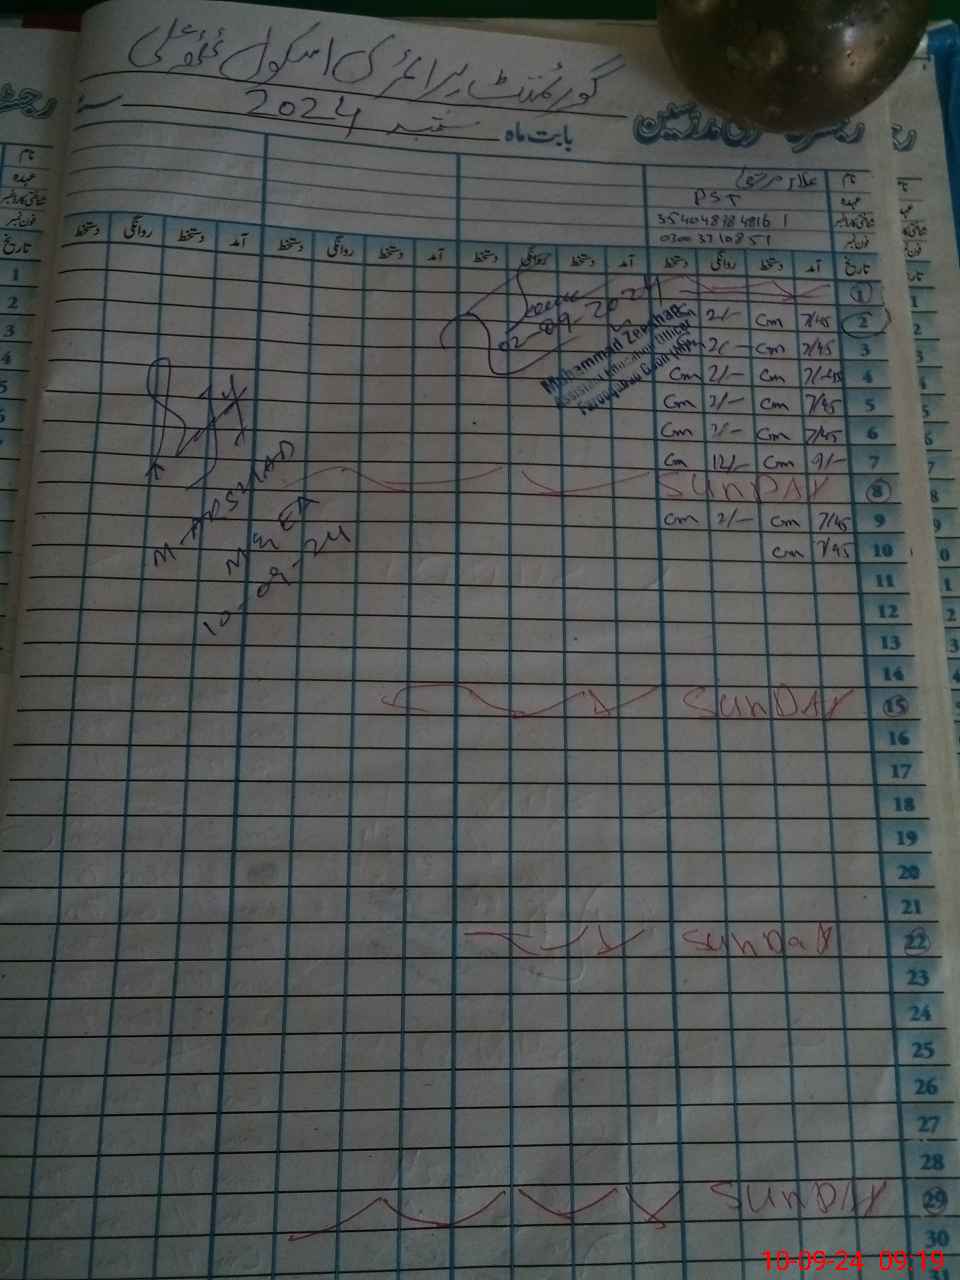 گورنمنٹ پرائمری اسکول
بابت ماہ ستمبر 2024
نام غلام مرتضیٰ
عہدہ PST
شناختی کارڈ نمبر
فون نمبر 03003710851
تاریخ آمد دستخط روانگی دستخط آمد دستخط روانگی دستخط آمد دستخط روانگی دستخط آمد دستخط روانگی دستخط
1
2 7/45 Cm 2/- Cm
3 7/45 Cm 2/-
4 7/45 Cm 2/- Cm
5 7/45 Cm 2/- Cm
6 7/45 Cm 2/- Cm
7 9/- Cm 12/- Cm
8 SUNDAY
9 7/45 Cm 2/- Cm
10 7/45 Cm
11
12
13
14
15 SUNDAY
16
17
18
19
20
21
22 SUNDAY
23
24
25
26
27
28
29 SUNDAY
30
02-09-2024
Muhammad Zeeshan
Assistant Education Officer
M-ARSHAD
MEA
10-09-24
10-09-24 09:19